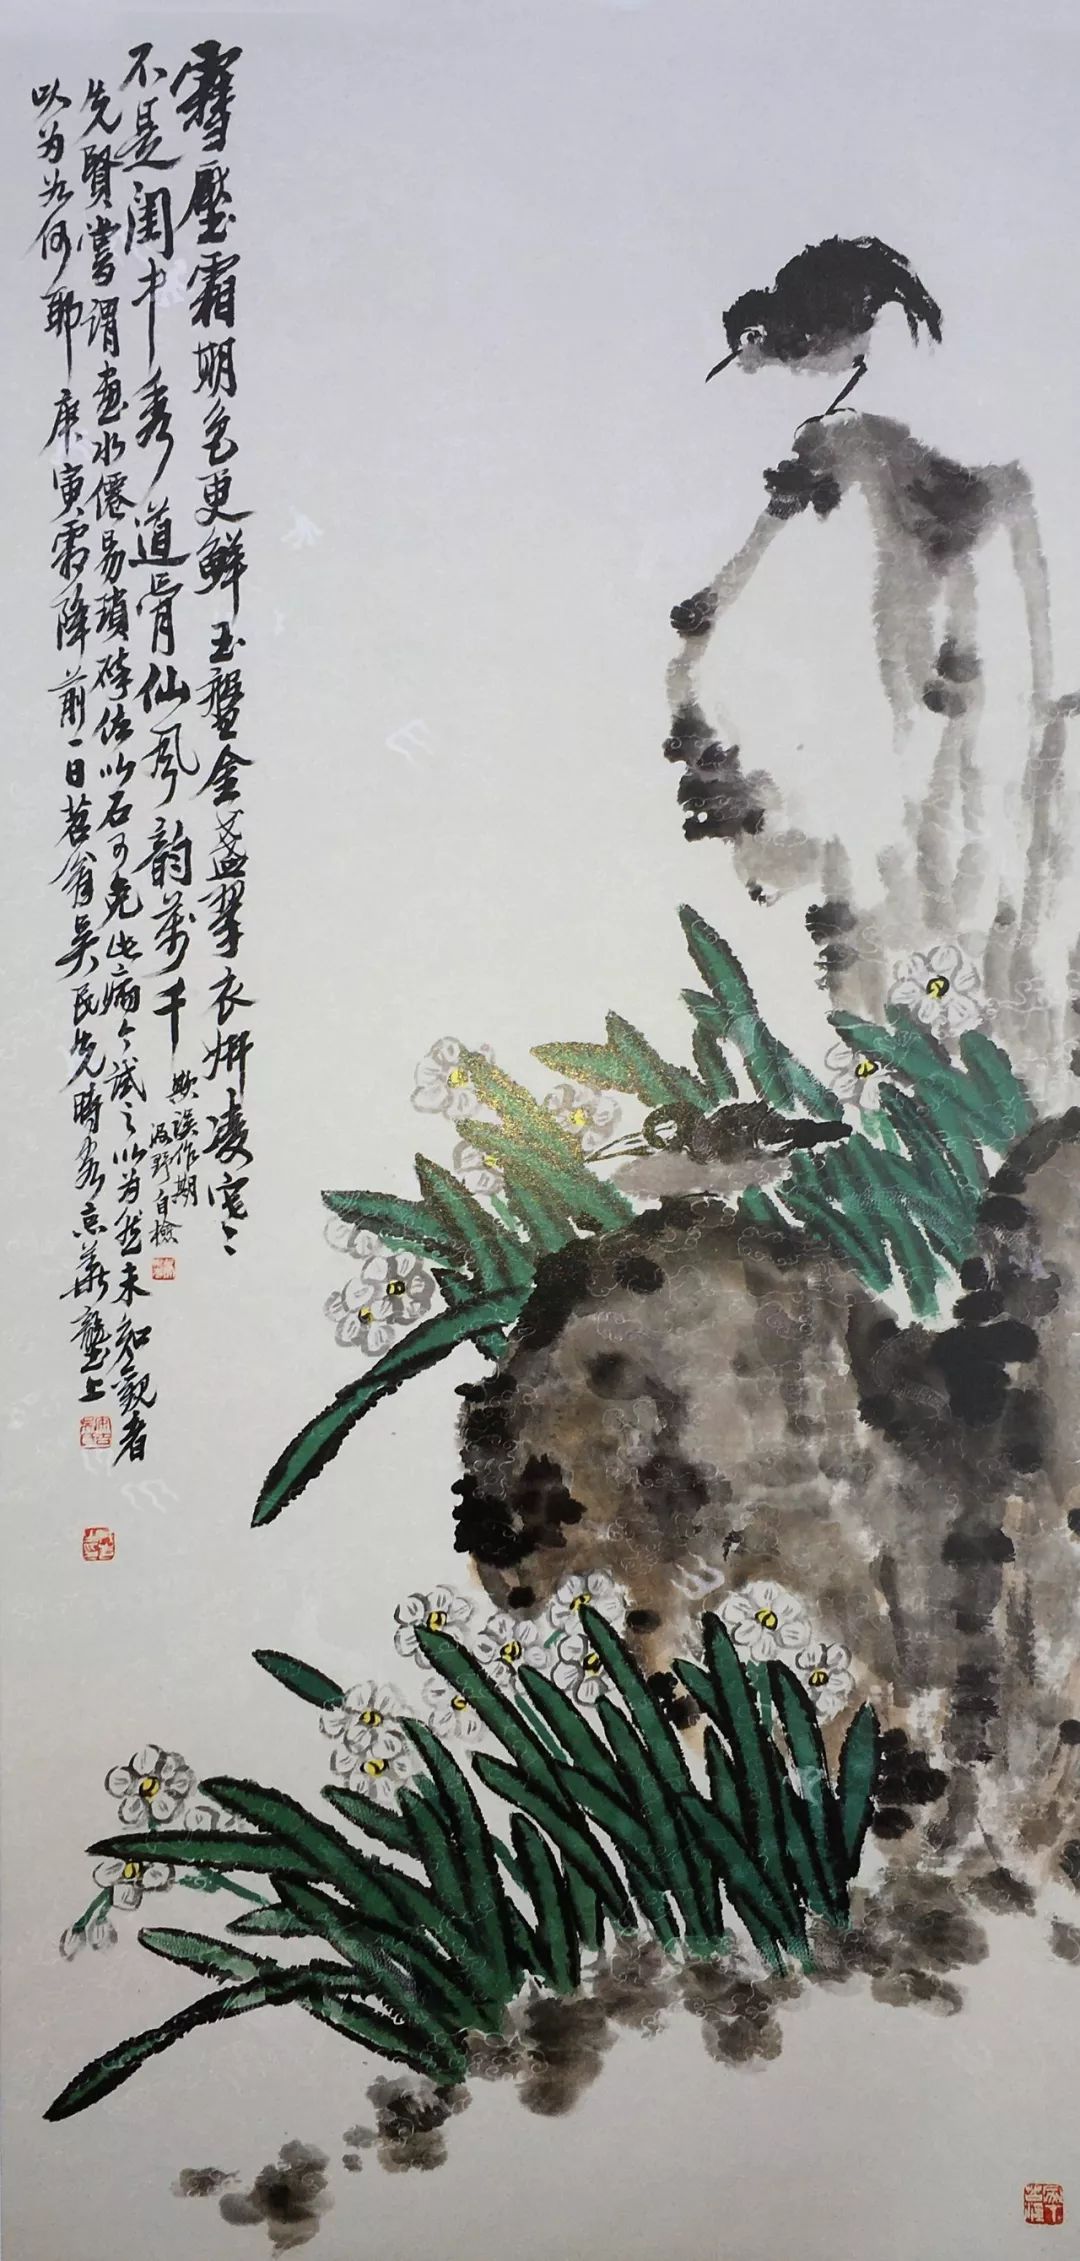 雪壓霜期色更鮮玉盤金盞翠衣妍凌寒
不是闺中秀道骨仙风韵萬千
欺誤作期
野自檢
先賢嘗謂畫水僊易瑣碎佐以石可免此病今試之以为然未知觀者
以为如何耶庚寅霜降前一日苕翁吴民先時客京華壟上